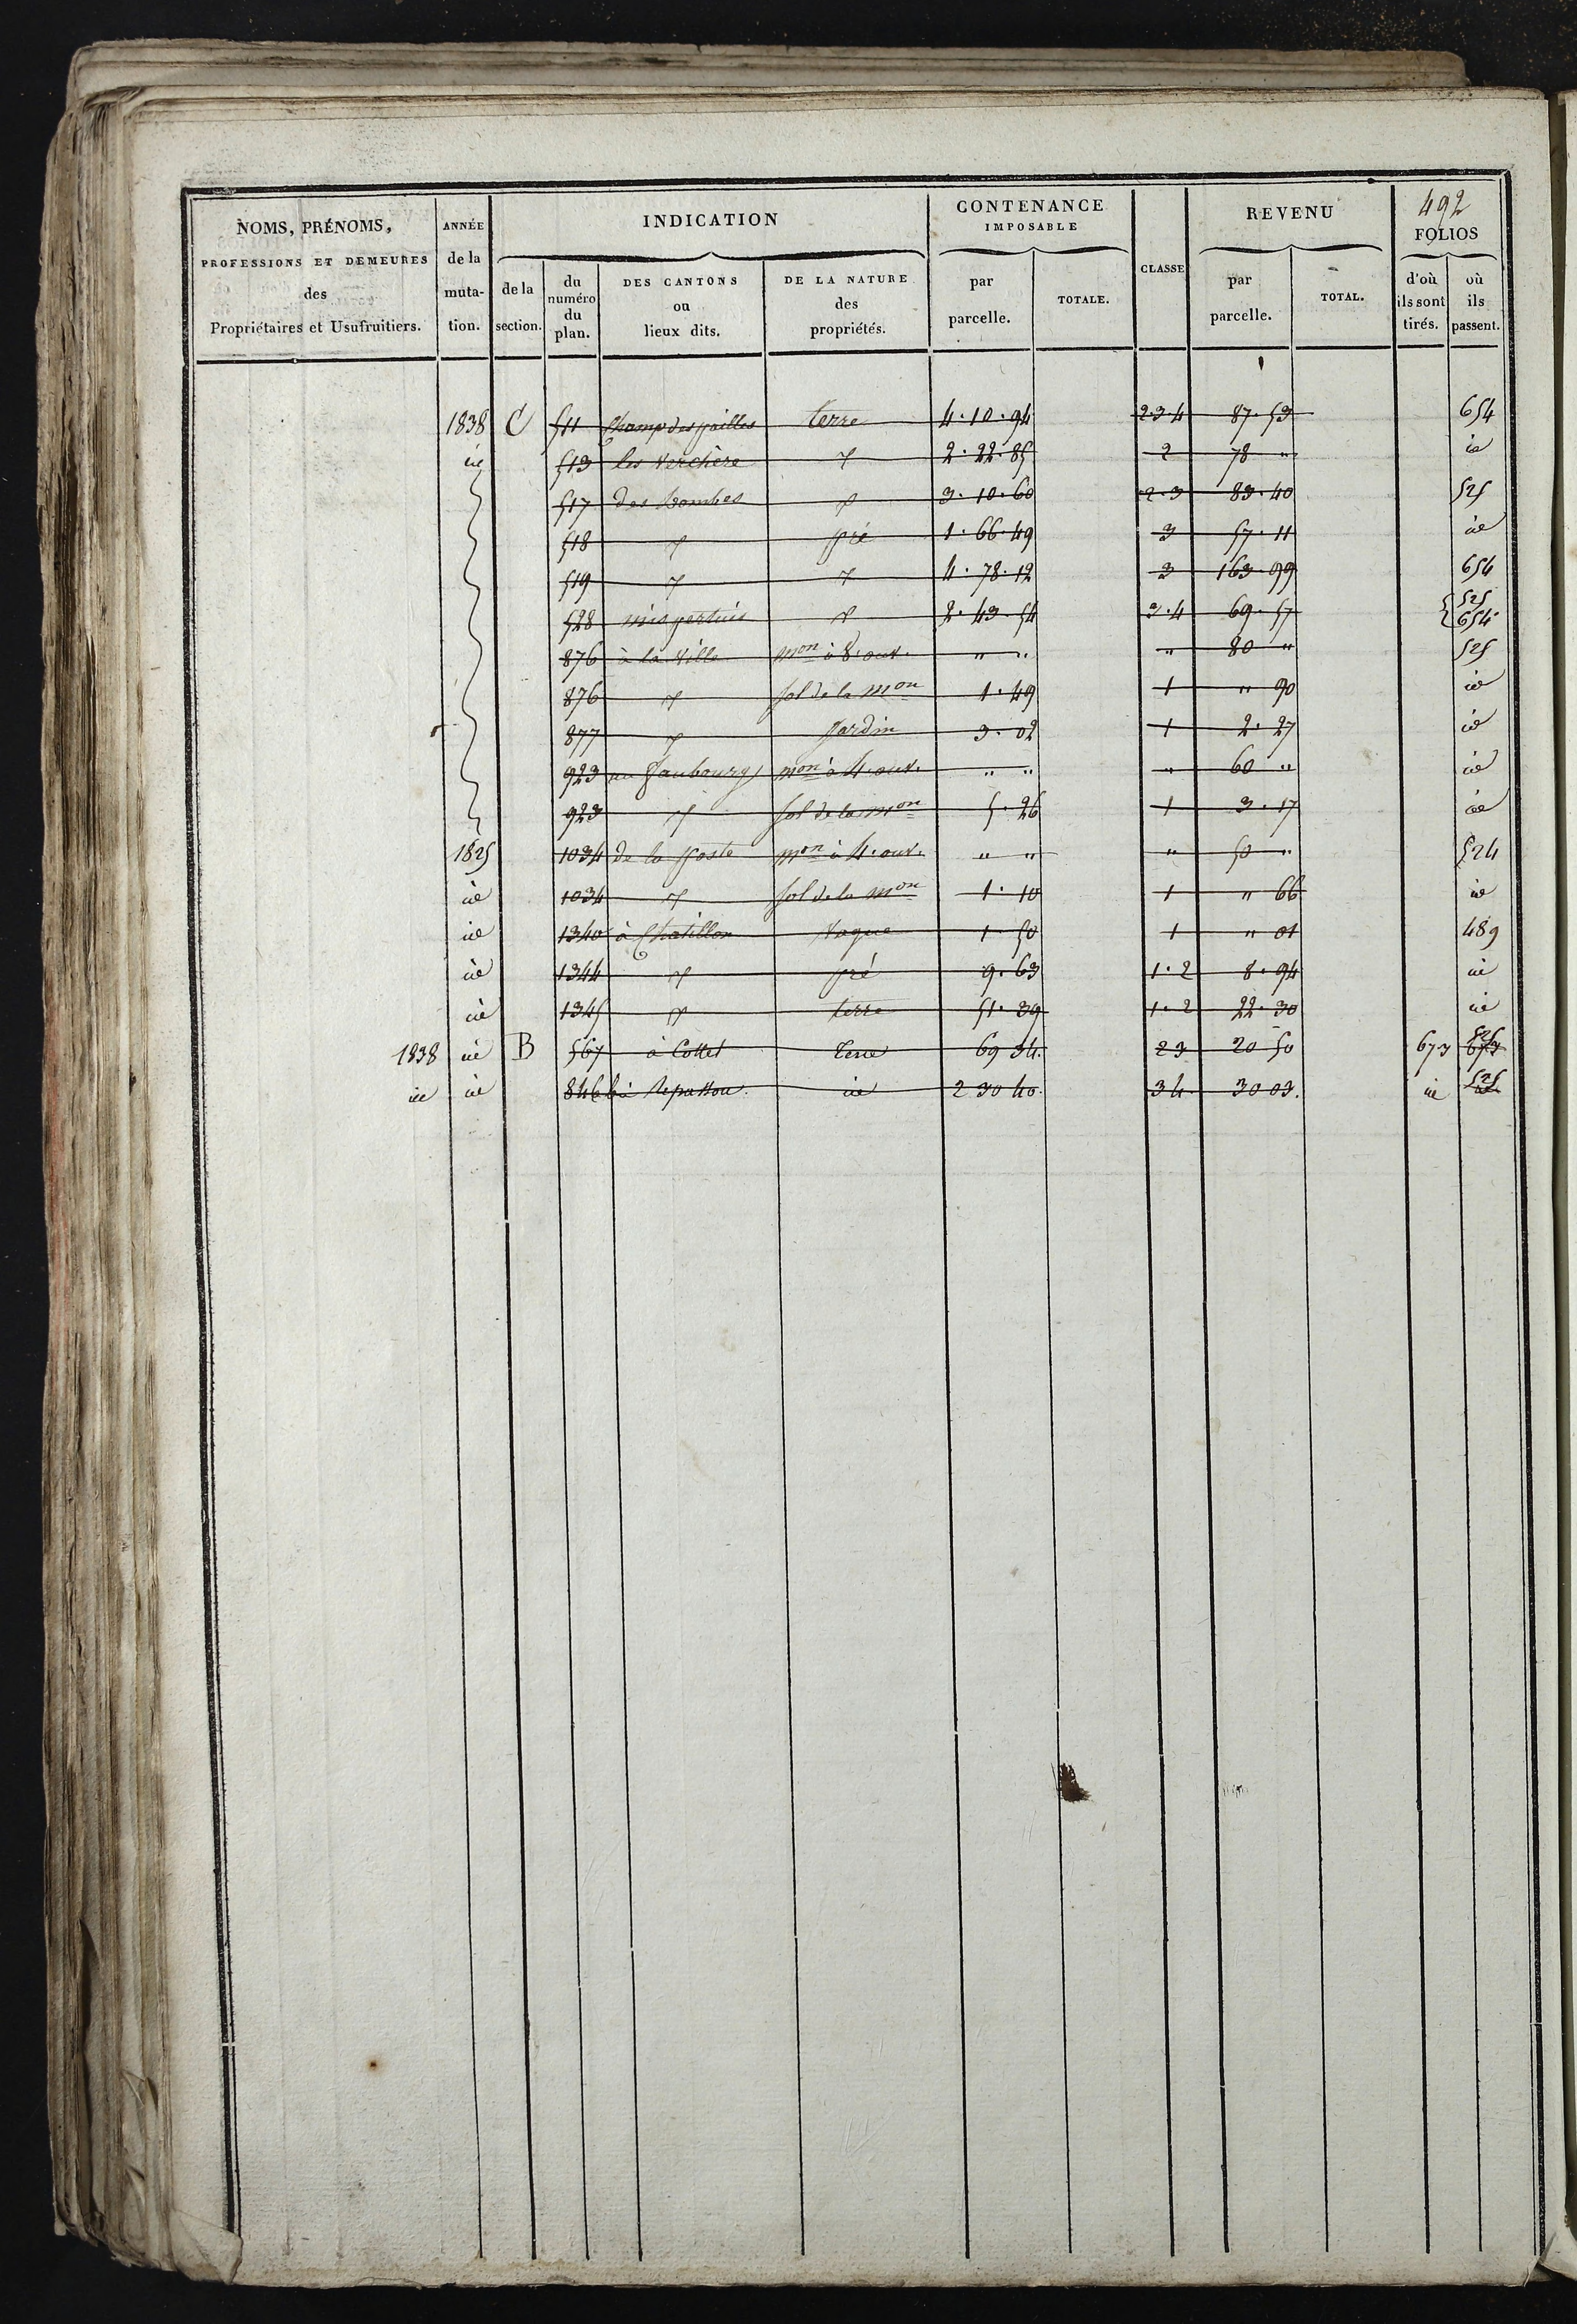 NOMS, PRÉNOMS, PROFESSIONS ET DEMEURES des Propriétaires et Usufruitiers.
ANNÉE de la muta- tion.
INDICATION
de la section.
du numéro du plan.
DES CANTONS ou lieux dits.
DE LA NATURE des propriétés.
CONTENANCE IMPOSABLE
par parcelle.
TOTALE.
CLASSE
REVENU
par parcelle.
TOTAL.
492
FOLIOS
d'où ils sont tirés.
où ils passent.
1838 C 511 Champ des pailles terre 4.10.94 2.3.4 87.53 654
id 513 les Verchère 2.22.85 2 78 " id
517 des Combes 3.10.60 2.3 83.40 525
518 pré 1.66.49 3 57.11 id
519 4.78.12 3 163.99 654
528 2.43.54 3.4 69.57 525 654
876 à la Ville mon à 8. ouv. " " " 80 " 525
876 sol de la mon 1.49 1 " 90 id
877 Jardin 3.02 1 2.27 id
923 au Faubourg mon à 4. ouv. " " " 60 " id
923 sol de la mon 5.26 1 3.17 id
1825 1034 de la Poste mon à 4. ouv. " " " 50 " 524
id 1034 sol de la mon 1.10 1 " 66 id
id 1340 à Chatillon Vague 1 50 1 " 01 489
id 1344 pré 9.63 1.2 8.94 id
id 1345 terre 51.39 1.2 22.30 id
1838 id B 567 à Collet terre 69 34. 23 20 50 673 673 525
id id 846 id 2 30 40. 34. 30 03. id 525